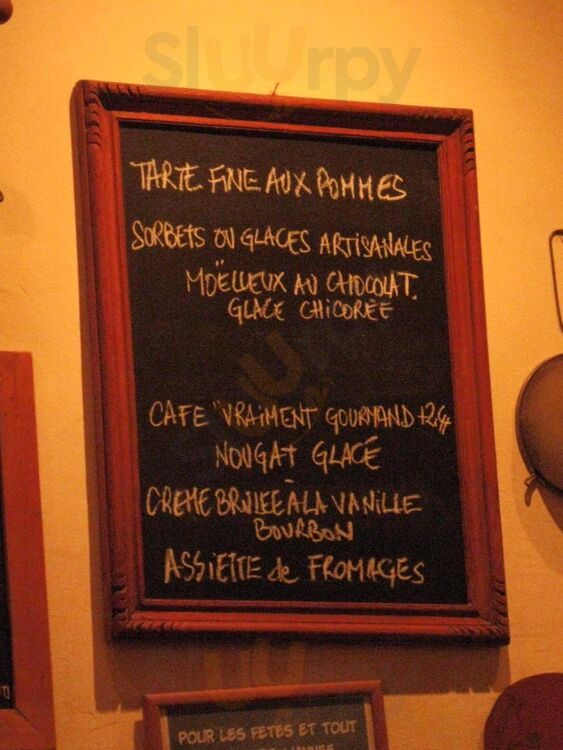 Sluurpy
TARTE FINE AUX POMMES
SORBETS OU GLACES ARTISANALES
MOËLLEUX AU CHOCOLAT.
GLACE CHICORÉE
CAFE "VRAIMENT GOURMAND
NOUGAT GLACÉ
CREME BRULEE À LA VANILLE
BOURBON
ASSIETTE de FROMAGES
POUR LES FETES ET TOUT